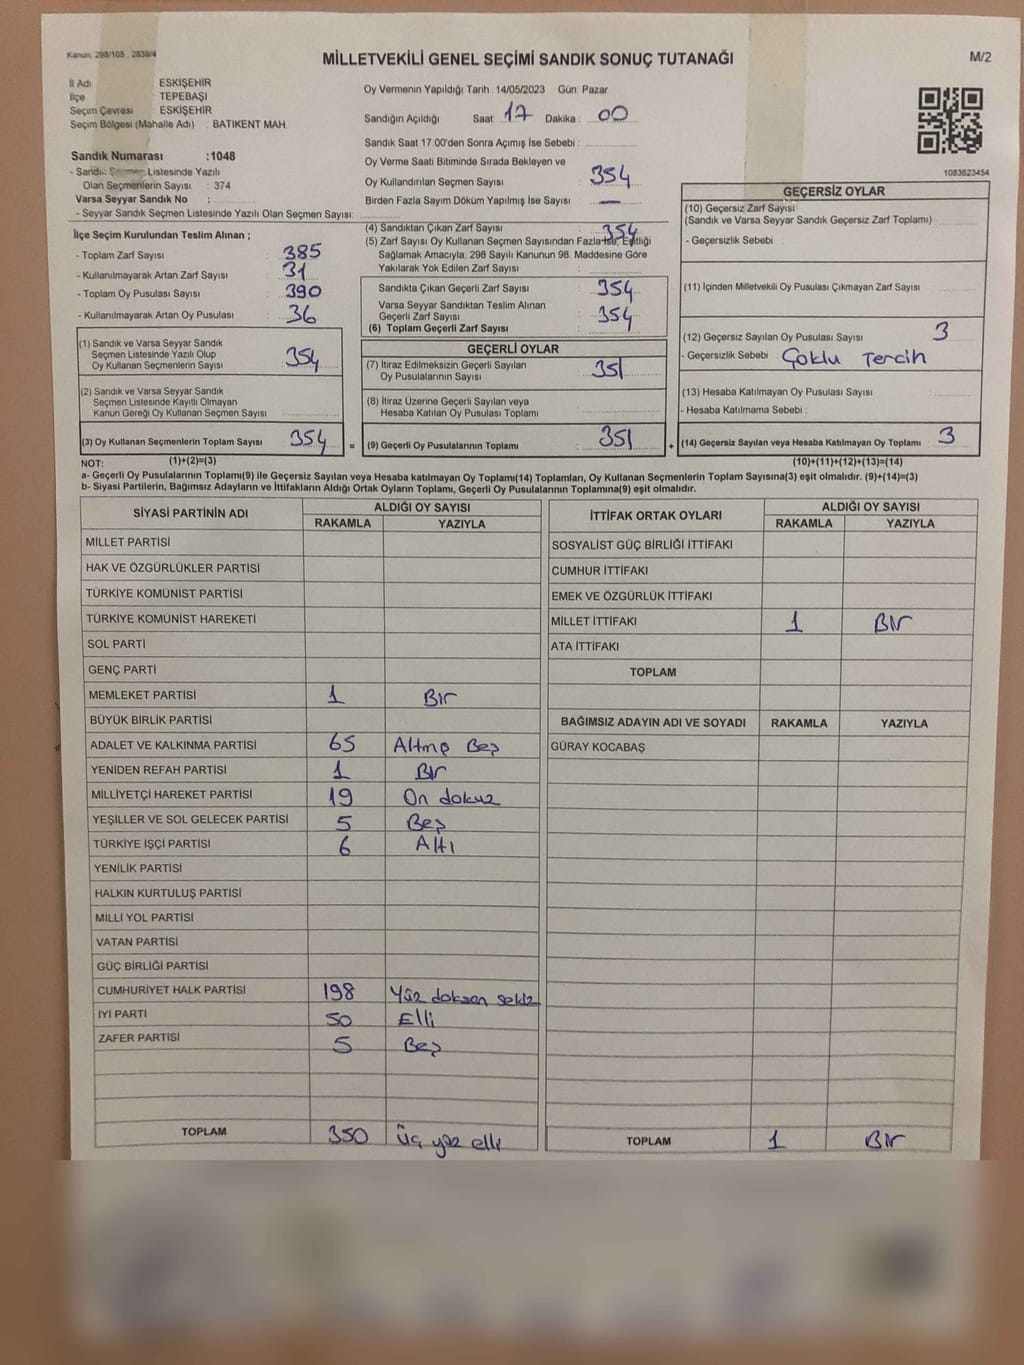 Kanun: 298/105 , 2839/4
MİLLETVEKİLİ GENEL SEÇİMİ SANDIK SONUÇ TUTANAĞI
M/2
İl Adı ESKİŞEHİR
İlçe TEPEBAŞI
Seçim Çevresi ESKİŞEHİR
Seçim Bölgesi (Mahalle Adı) : BATIKENT MAH.
Sandık Numarası :1048
- Sandık Seçmen Listesinde Yazılı
Olan Seçmenlerin Sayısı : 374
Varsa Seyyar Sandık No :
- Seyyar Sandık Seçmen Listesinde Yazılı Olan Seçmen Sayısı:
Oy Vermenin Yapıldığı Tarih :14/05/2023 Gün: Pazar
Sandığın Açıldığı Saat: 17 Dakika : 00
Sandık Saat 17.00'den Sonra Açımış İse Sebebi :
Oy Verme Saati Bitiminde Sırada Bekleyen ve
Oy Kullandırılan Seçmen Sayısı : 354
Birden Fazla Sayım Döküm Yapılmış İse Sayısı : —
1083623454
İlçe Seçim Kurulundan Teslim Alınan ;
- Toplam Zarf Sayısı : 385
- Kullanılmayarak Artan Zarf Sayısı : 31
- Toplam Oy Pusulası Sayısı : 390
- Kullanılmayarak Artan Oy Pusulası : 36
(1) Sandık ve Varsa Seyyar Sandık
Seçmen Listesinde Yazılı Olup
Oy Kullanan Seçmenlerin Sayısı : 354
(2) Sandık ve Varsa Seyyar Sandık
Seçmen Listesinde Kayıtlı Olmayan
Kanun Gereği Oy Kullanan Seçmen Sayısı :
(3) Oy Kullanan Seçmenlerin Toplam Sayısı : 354 =
(1)+(2)=(3)
(4) Sandıktan Çıkan Zarf Sayısı : 354
(5) Zarf Sayısı Oy Kullanan Seçmen Sayısından Fazla İse, Eşitliği
Sağlamak Amacıyla; 298 Sayılı Kanunun 98. Maddesine Göre
Yakılarak Yok Edilen Zarf Sayısı :
Sandıkta Çıkan Geçerli Zarf Sayısı : 354
Varsa Seyyar Sandıktan Teslim Alınan
Geçerli Zarf Sayısı : 354
(6) Toplam Geçerli Zarf Sayısı :
GEÇERLİ OYLAR
(7) İtiraz Edilmeksizin Geçerli Sayılan
Oy Pusulalarının Sayısı : 351
(8) İtiraz Üzerine Geçerli Sayılan veya
Hesaba Katılan Oy Pusulası Toplamı :
(9) Geçerli Oy Pusulalarının Toplamı : 351 +
GEÇERSİZ OYLAR
(10) Geçersiz Zarf Sayısı
(Sandık ve Varsa Seyyar Sandık Geçersiz Zarf Toplamı) :
- Geçersizlik Sebebi :
(11) İçinden Milletvekili Oy Pusulası Çıkmayan Zarf Sayısı :
(12) Geçersiz Sayılan Oy Pusulası Sayısı : 3
- Geçersizlik Sebebi : Çoklu Tercih
(13) Hesaba Katılmayan Oy Pusulası Sayısı :
- Hesaba Katılmama Sebebi :
(14) Geçersiz Sayılan veya Hesaba Katılmayan Oy Toplamı : 3
(10)+(11)+(12)+(13)=(14)
NOT:
a- Geçerli Oy Pusulalarının Toplamı(9) ile Geçersiz Sayılan veya Hesaba katılmayan Oy Toplamı(14) Toplamları, Oy Kullanan Seçmenlerin Toplam Sayısına(3) eşit olmalıdır. (9)+(14)=(3)
b- Siyasi Partilerin, Bağımsız Adayların ve İttifakların Aldığı Ortak Oyların Toplamı, Geçerli Oy Pusulalarının Toplamına(9) eşit olmalıdır.
SİYASİ PARTİNİN ADI ALDIĞI OY SAYISI
RAKAMLA YAZIYLA
MİLLET PARTİSİ
HAK VE ÖZGÜRLÜKLER PARTİSİ
TÜRKİYE KOMÜNİST PARTİSİ
TÜRKİYE KOMÜNİST HAREKETİ
SOL PARTİ
GENÇ PARTİ
MEMLEKET PARTİSİ 1 Bir
BÜYÜK BİRLİK PARTİSİ
ADALET VE KALKINMA PARTİSİ 65 Altmış Beş
YENİDEN REFAH PARTİSİ 1 Bir
MİLLİYETÇİ HAREKET PARTİSİ 19 On dokuz
YEŞİLLER VE SOL GELECEK PARTİSİ 5 Beş
TÜRKİYE İŞÇİ PARTİSİ 6 Altı
YENİLİK PARTİSİ
HALKIN KURTULUŞ PARTİSİ
MİLLİ YOL PARTİSİ
VATAN PARTİSİ
GÜÇ BİRLİĞİ PARTİSİ
CUMHURİYET HALK PARTİSİ 198 Yüz doksan sekiz
İYİ PARTİ 50 Elli
ZAFER PARTİSİ 5 Beş
TOPLAM 350 Üç yüz elli
İTTİFAK ORTAK OYLARI ALDIĞI OY SAYISI
RAKAMLA YAZIYLA
SOSYALİST GÜÇ BİRLİĞİ İTTİFAKI
CUMHUR İTTİFAKI
EMEK VE ÖZGÜRLÜK İTTİFAKI
MİLLET İTTİFAKI 1 Bir
ATA İTTİFAKI
TOPLAM
BAĞIMSIZ ADAYIN ADI VE SOYADI RAKAMLA YAZIYLA
GÜRAY KOCABAŞ
TOPLAM 1 Bir